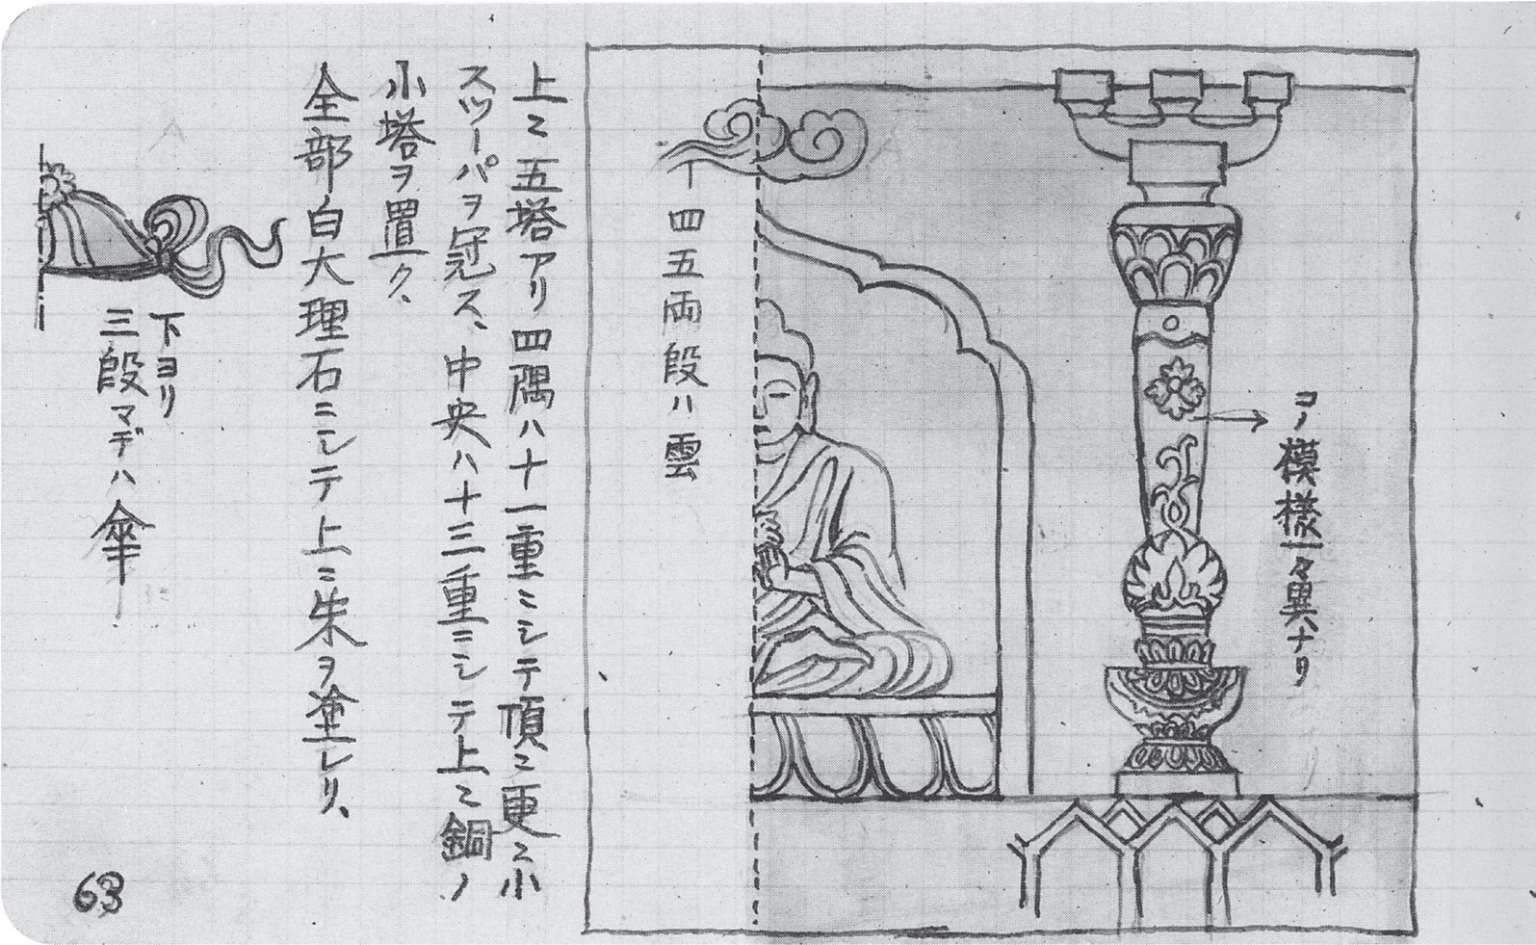 コノ模様一々異ナリ
丁四五両段ハ雲
上ニ五塔アリ四隅ハ十一重ニシテ頂ニ更ニ小
スツーパヲ冠ス、中央ハ十三重ニシテ上ニ銅ノ
小塔ヲ置ク、
全部白大理石ニシテ上ニ朱ヲ塗レリ、
下ヨリ
三段マデハ傘
63